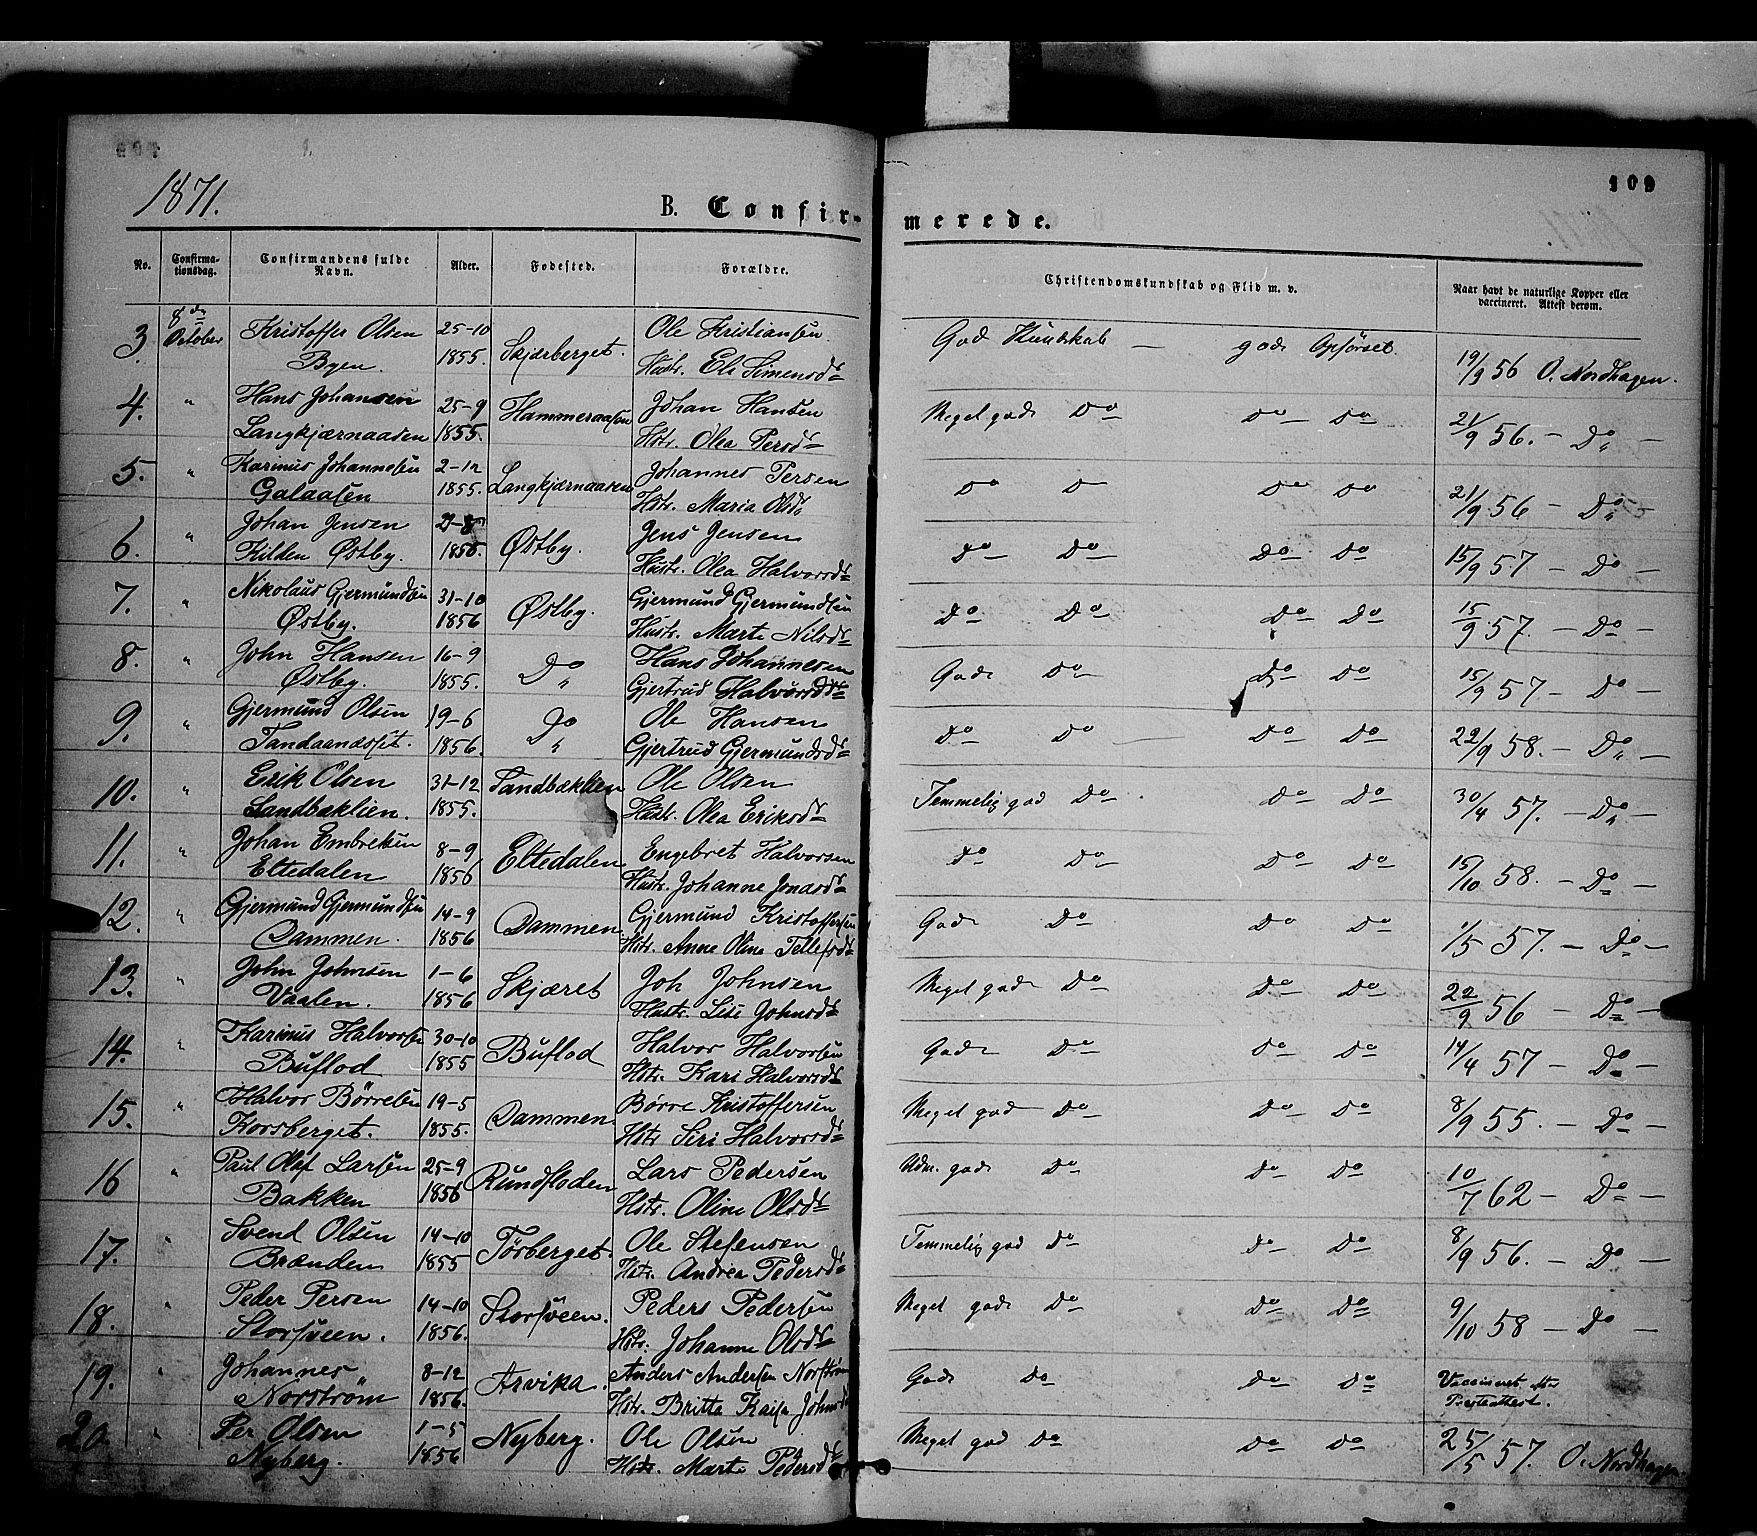 1871.
109
B. Confir-merede.
No. Confirma-tionsdag. Confirmandens fulde Navn. Alder. Fødested. Forældre. Christendomskundskab og Flid m. v. Naar havt de naturlige Kopper eller vaccineret. Attest derom.
8de
3. October Kristoffer Olsen 25-10 Skjærberget. Ole Kristiansen God Kundskab — gode Opførsel. 19/9 56 O. Nordhagen.
Byen. 1855. Hustr. Eli Simensdr
4. " Hans Johansen 25-9 Hammeraasen Johan Hansen Meget gode Do Do Do 21/9 56. — Do —
Langkjærnaasen 1855. Hstr. Olea Persdr
5. " Karinus Johannesen 2-12 Langkjærnaasen Johannes Persen Do Do Do Do 21/9 56 — Do —
Galaasen 1855. Hstr. Maria Olsdr
6. " Johan Jensen Østby. Jens Jensen Do Do Do Do 15/9 57 — Do —
Kilden Østby. Hustr. Olea Halvorsdr
7. " Nikolaus Gjermundsen 31-10 Østby. Gjermund Gjermundsen Do Do Do Do 15/9 57. — Do —
Østby. 1856 Hustr. Marte Nilsdr
8. " John Hansen 16-9 Do Hans Johannesen Gode Do Do Do 15/9 57 — Do —
Østby. 1855. Gjertrud Halvorsdr
9. " Gjermund Olsen 19-6 Do Ole Hansen Do Do Do Do 22/9 58. — Do —
Tandaandsæt. 1856. Gjertrud Gjermundsdr
10. " Erik Olsen 31-12 Sandbæklien Ole Olsen Temmelig god Do Do Do 30/4 57. — Do —
Sandbæklien. 1855. Hustr. Olea Eriksdr
11. " Johan Embretsen 8-9 Eltedalen Engebret Halvorsen Do Do Do Do 15/10 58. — Do —
Eltedalen 1856 Hustr. Johanne Jonasdr
12. " Gjermund Gjermundsen 14-9 Dammen Gjermund Kristoffersen Gode Do Do Do 1/5 57. — Do —
Dammen. 1856 Hstr. Anne Oline Tellefsdr
13. " John Johnsen 1-6 Skjæret Joh Johnsen Meget gode Do Do Do 22/9 56 — Do —
Vaalen. 1856 Hustr. Lisi Johnsdr
14. " Karinus Halvorsen 30-10 Buflod Halvor Halvorsen Gode Do Do Do 14/4 57 — Do —
Buflod 1855 Hstr. Kari Halvorsdr
15. " Halvor Børresen 19-5 Dammen Børre Kristoffersen Meget god Do Do Do 8/9 55. — Do —
Korsberget. 1855. Hstr Siri Halvorsdr
16 " Paul Olaf Larsen 25-9 Rundfloden Lars Pedersen Udm. gode Do Do Do 10/7 62 — Do —
Bakken 1856 Hstr. Oline Olsdr
17. " Svend Olsen 14-10 Tørberget. Ole Stefensen Temmelig god Do Do Do 8/9 56. — Do —
Brænden 1855 Hstr. Andrea Pedersdr
18. " Peder Persen 14-10 Storsveen. Peders Pedersen Meget gode Do Do Do 9/10 58 — Do —
Storsveen. 1856. Hstr. Johanne Olsdr
19. " Johannes 8-12 Arvika. Anders Andersen Norstrøm Gode Do Do Do Vaccineret efter
Norstrøm 1856. Hstr. Britta Kaisa Johnsdr Præsteattest.
20. " Per Olsen 1-5 Nyberg. Ole Olsen Meget god Do Do Do 25/5 57. O. Nordhagen.
Nyberg. 1856 Hstr. Marte Pedersdr